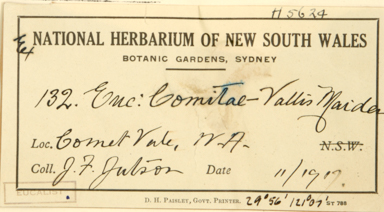 H 5624
Ex
NATIONAL HERBARIUM OF NEW SOUTH WALES
BOTANIC GARDENS, SYDNEY
132. Euc: Comitae-Vallis Maiden
Loc. Comet Vale, W.A. N.S.W.
Coll. J. F. Jutson Date 11/1917.
EUCALIST
D. H. PAISLEY, GOVT. PRINTER. 29°56' 121°07' ST 788